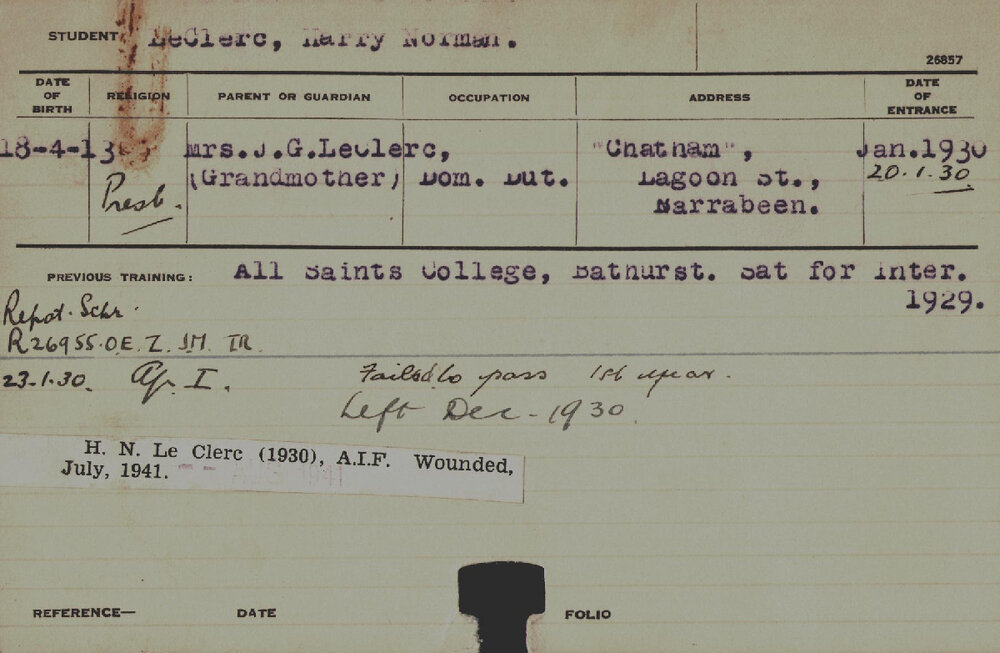 STUDENT LeClerc, Harry Norman.
26857
DATE OF BIRTH RELIGION PARENT OR GUARDIAN OCCUPATION ADDRESS DATE OF ENTRANCE
18-4-13 Mrs.J.G.Leclerc, "Chatham", Jan.1930
Presb. (Grandmother) Dom. Dut. Lagoon St., 20.1.30
Narrabeen.
PREVIOUS TRAINING: All Saints College, Bathurst. Sat for Inter.
1929.
Repat. Schr.
R26955.O.E. Z. J.M. TR.
23.1.30. Ag. I. Failed to pass 1st year.
Left Dec - 1930.
H. N. Le Clerc (1930), A.I.F. Wounded,
July, 1941.
REFERENCE— DATE FOLIO